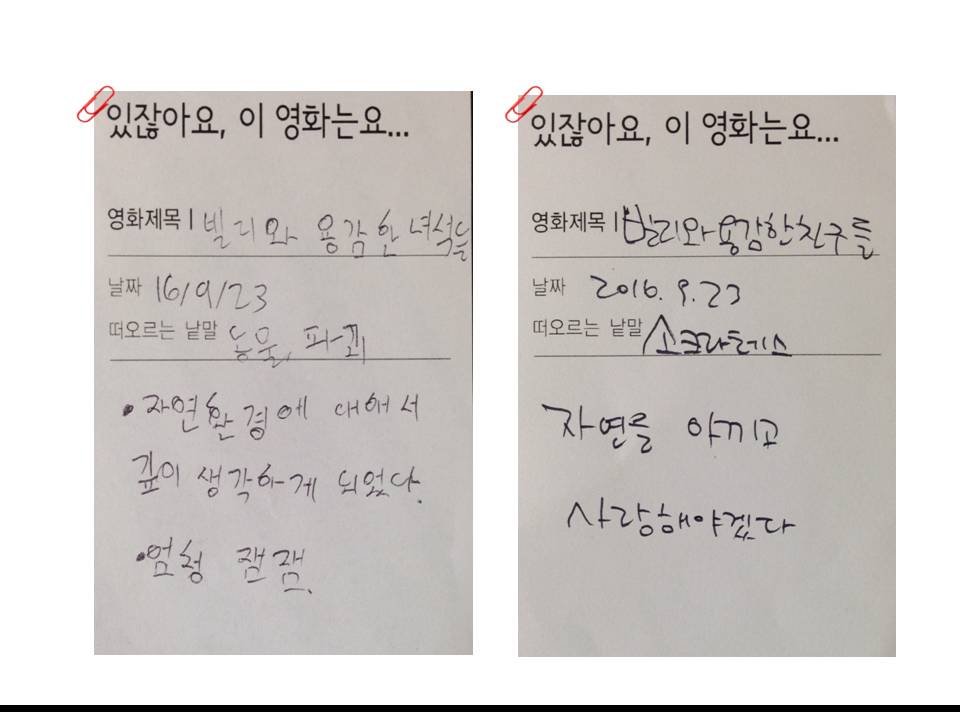 있잖아요, 이 영화는요...
영화제목 | 빌리와 용감한 녀석들
날짜 16/9/23
떠오르는 낱말 동물, 파괴
• 자연환경에 대해서
깊이 생각하게 되었다.
• 엄청 잼잼.
있잖아요, 이 영화는요...
영화제목 | 빌리와 용감한 친구들
날짜 2016. 9. 23
떠오르는 낱말 소크라테스
자연를 아끼고
사랑해야겠다